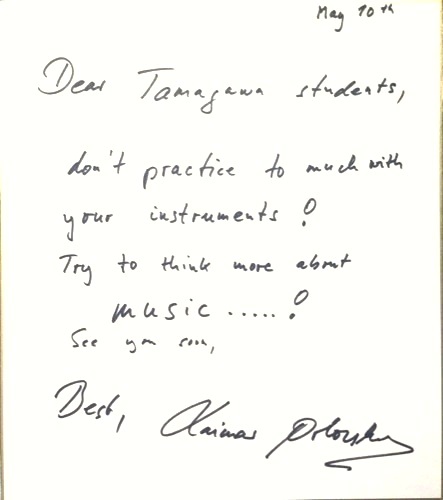 May 10th
Dear Tamagawa students,
don't practice to much with
your instruments !
Try to think more about
music ..... !
See you soon,
Best,